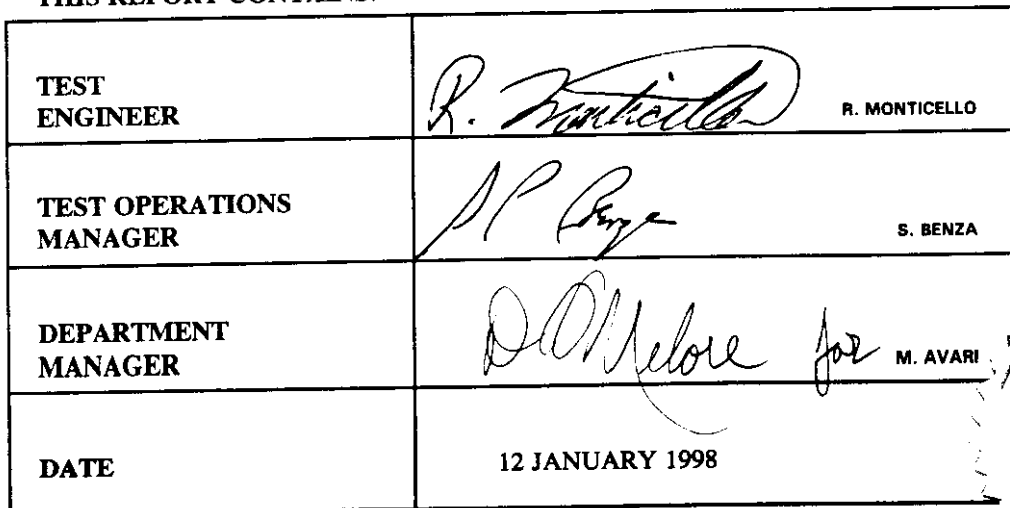 THIS REPORT CONTAINS:
TEST
ENGINEER
R. Monticello R. MONTICELLO
TEST OPERATIONS
MANAGER
S P Benza S. BENZA
DEPARTMENT
MANAGER
for M. AVARI
DATE
12 JANUARY 1998